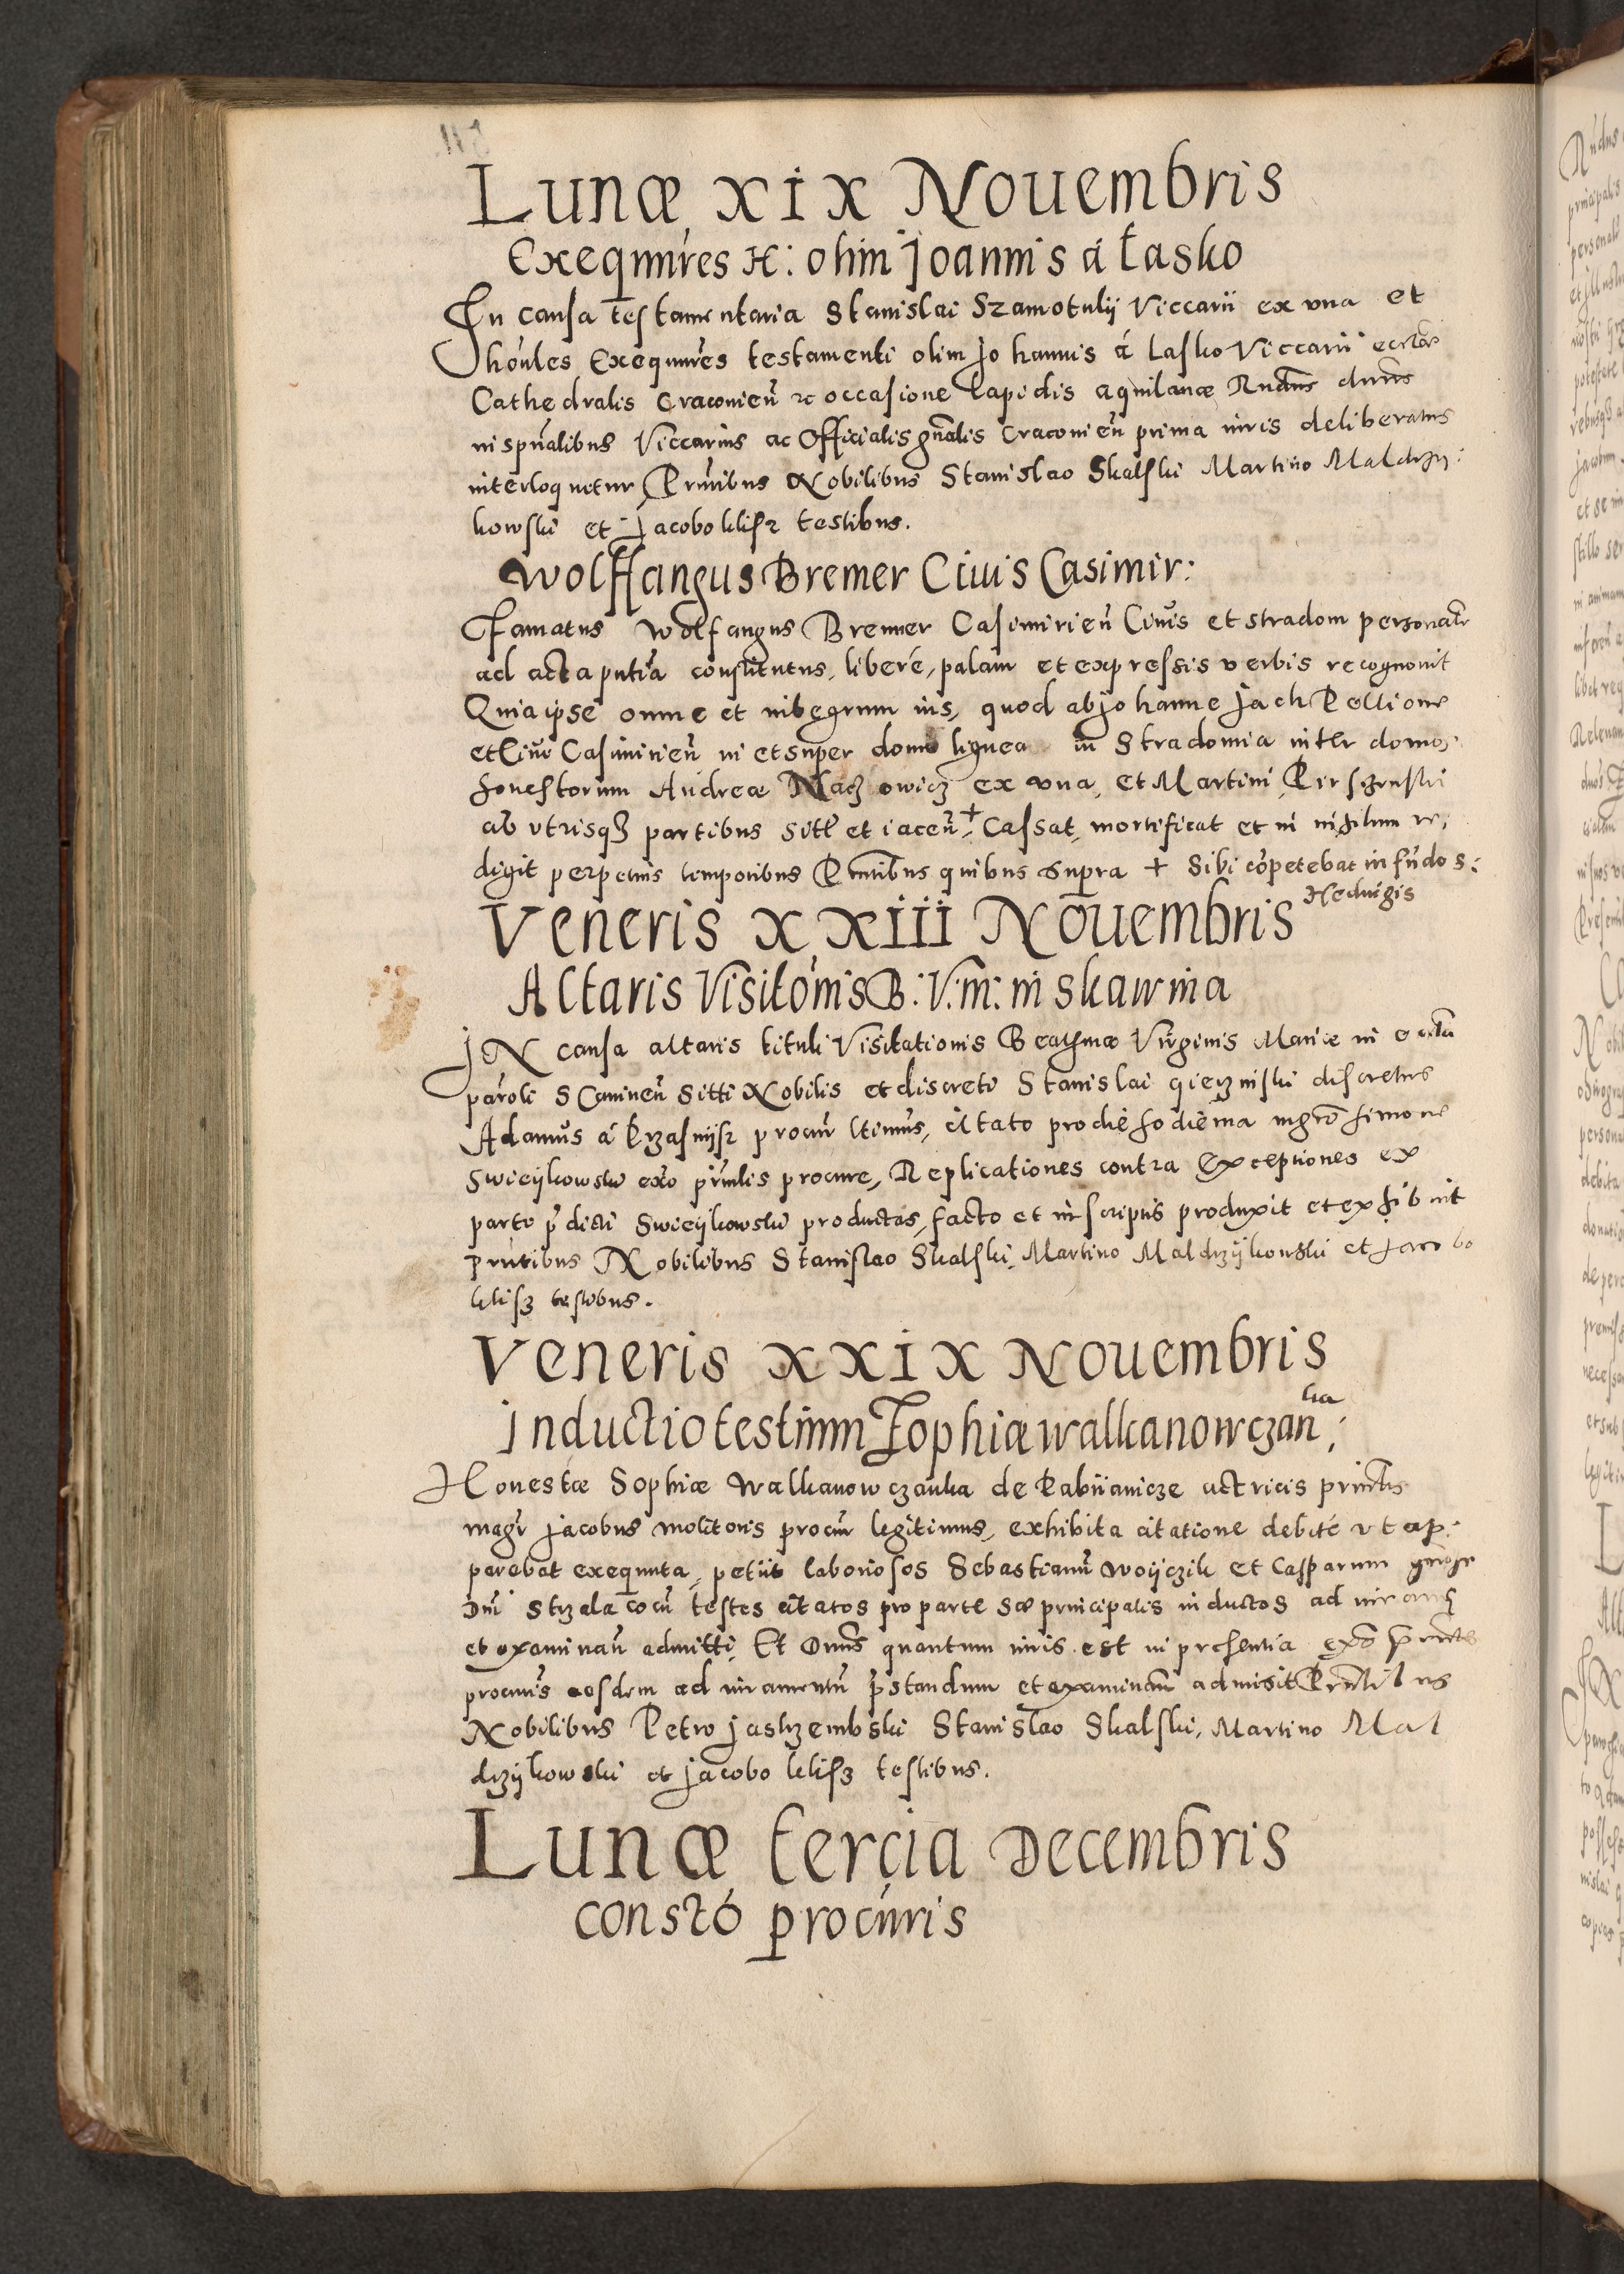 Lunæ xix Nouembris
Exeqmures H: olim Joannis á Lasko
In causa testamentaria Stanislai Szamotulij Viccarii ex vna et
honles Exequures testamenti olim Johannis á Lasko Viccarii eccliæ
Cathedralis Cracovien̄ rc occasione lapidis aquilanæ Rndus dnus
in spūalibus Viccarius ac Officialis gnalis Cracovien̄ prima iuris deliberatus
interloquetur Prntibus Nobilibus Stanislao Skalski Martino Maldrzy:
kowski et Jacobo klisz testibus.
Wolffangus Bremer Ciuis Casimir:
Famatus Wolfangus Bremer Casimirien̄ Ciuis et stradom personalr
ad acta pntia constitutus, liberé, palam et expressis verbis recognouit
Quia ipse omne et integrum ius, quod ab Johanne Jach Pellione
et Ciue Casimirien̄ in et super domo lignea in Stradomia inter domos
honestorum Andreæ ex vna, et Martini
ab vtrisq3 partibus sitt et iacen̄ + Cassat, mortificat et in nihilum re,
digit perpetuis temporibus Prntibus quibus supra + sibi cōpetebat in fūdo s:
Heduigis
Veneris xxiii Nouembris
Altaris Visitónis B: V: m: in skawina
IN causa altaris tituli Visitationis Beatissimæ Virginis Mariæ in ecclia
paroli Scawinen̄ sitti Nobilis et discreti Stanislai giezniski discretus
Adamus á Przasnijsz procur ltimus, citato pro die hodierna mgro Simone
Swieijkowski exo prinlis procure, Replicationes contra Exceptiones ex
parte p̄dicti Swieijkowski productas, facto et in scriptis produxit et exhibuit
prntibus Nobilibus Stanislao Skalski, Martino Maldrzijkowski et Jacobo
klisz testibus.
Veneris xxix Nouembris
Inductio testium Zophiæ walkanowczan ka:
Honestæ Sophiæ Walkanowczanka de Pabiianicze actricis prin̄lis
magr Jacobus molitoris procur legitimus, exhibita citatione debité vt ap:
parebat exequuta, petiit laboriosos Sebastianū Woijczik et Casparum
Dni strzala cocū testes citatos pro parte suæ principalis inductos ad iurand
et examinan̄ admitti, Et Dnus quantum iuris est in presentia exo p̄ntis
procuris eosdem ad iuramentū p̄standum et examinan̄ admisit Prntibus
Nobilibus Petro Jastrzembski Stanislao Skalski, Martino Mal
drzijkowski et Jacobo klisz testibus.
Lunæ tercia Decembris
constó procuris